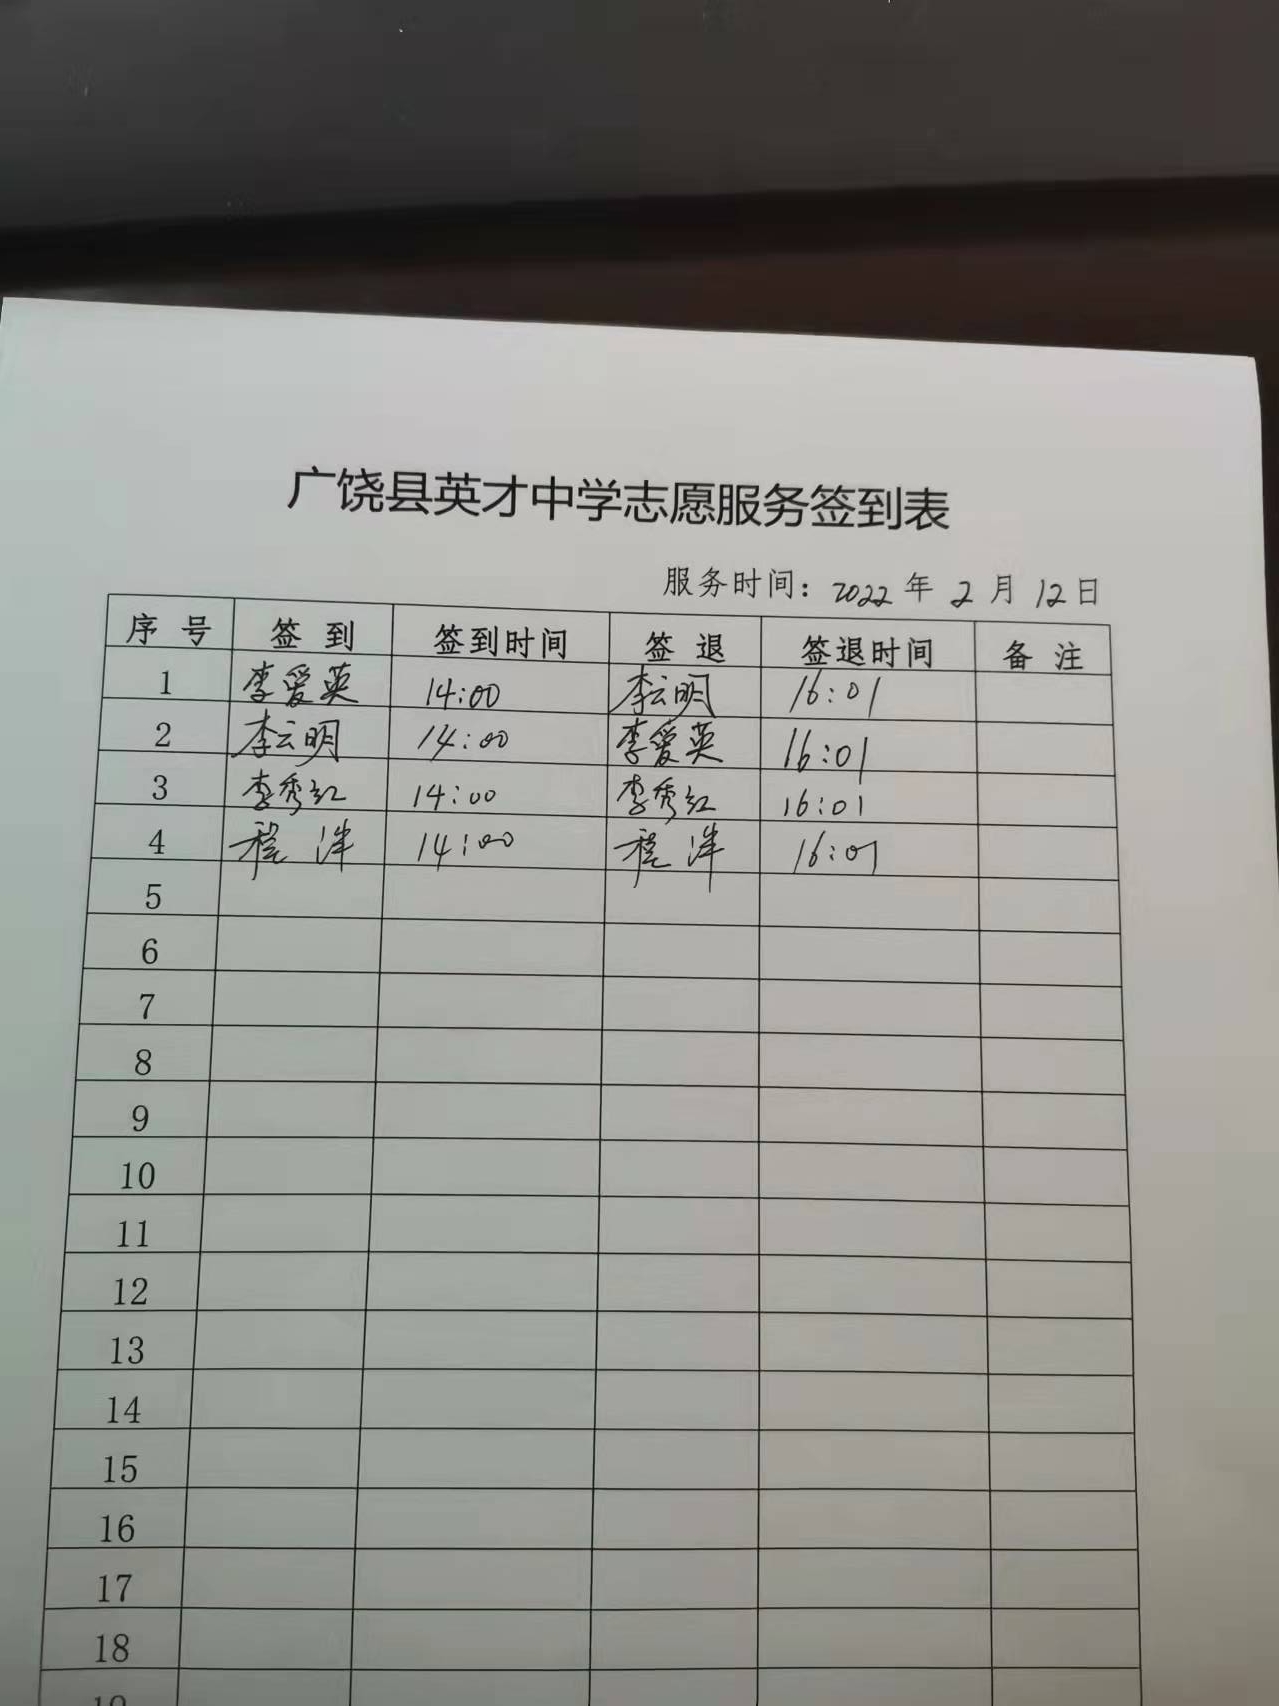 广饶县英才中学志愿服务签到表
服务时间：2022年2月12日
序号 签到 签到时间 签退 签退时间 备注
1 李爱英 14:00 李云明 16:01
2 李云明 14:00 李爱英 16:01
3 李秀红 14:00 李秀红 16:01
4 14:00 16:01
5
6
7
8
9
10
11
12
13
14
15
16
17
18